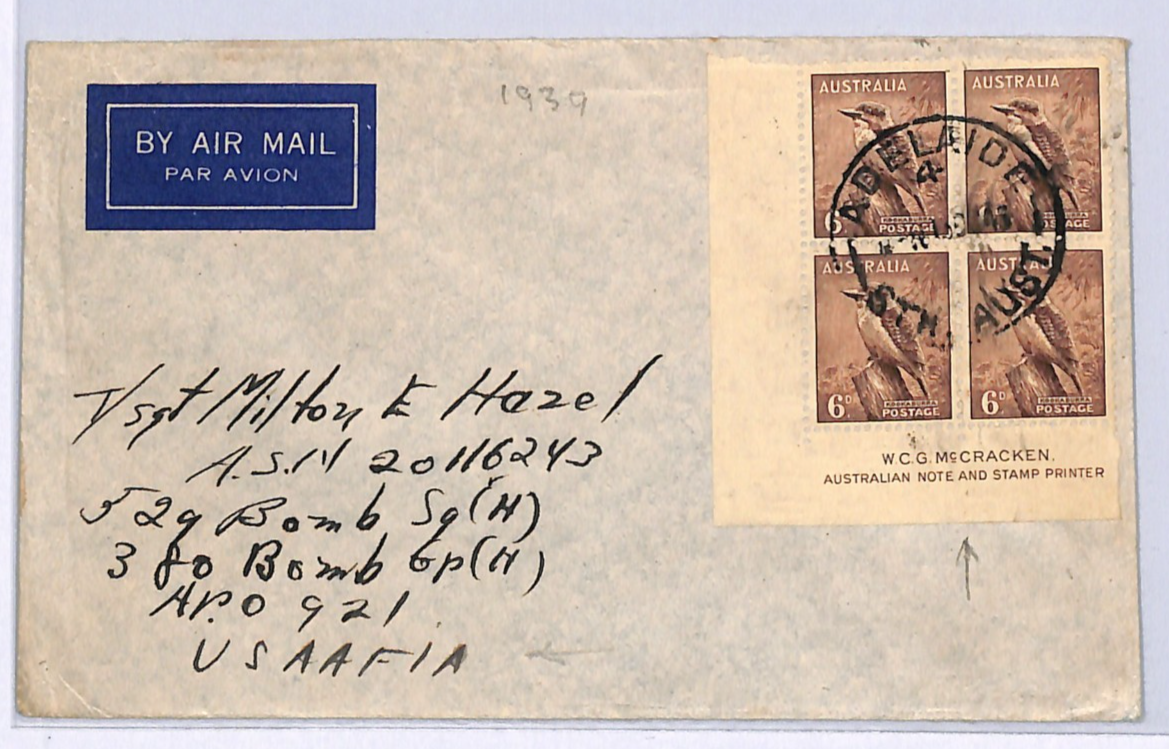 BY AIR MAIL
PAR AVION
1939
AUSTRALIA
AUSTRALIA
6
KOOKABURRA
POSTAGE
POSTAGE
ADELAIDE
4
STH. AUST.
AUSTRALIA
AUSTRALIA
6D
KOOKABURRA
POSTAGE
6D
KOOKABURRA
POSTAGE
W.C.G. McCRACKEN.
AUSTRALIAN NOTE AND STAMP PRINTER
T/sgt Milton E Hazel
A.S.N 20116243
529 Bomb Sq(H)
380 Bomb Gp(H)
A.P.O 921
USAAFIA